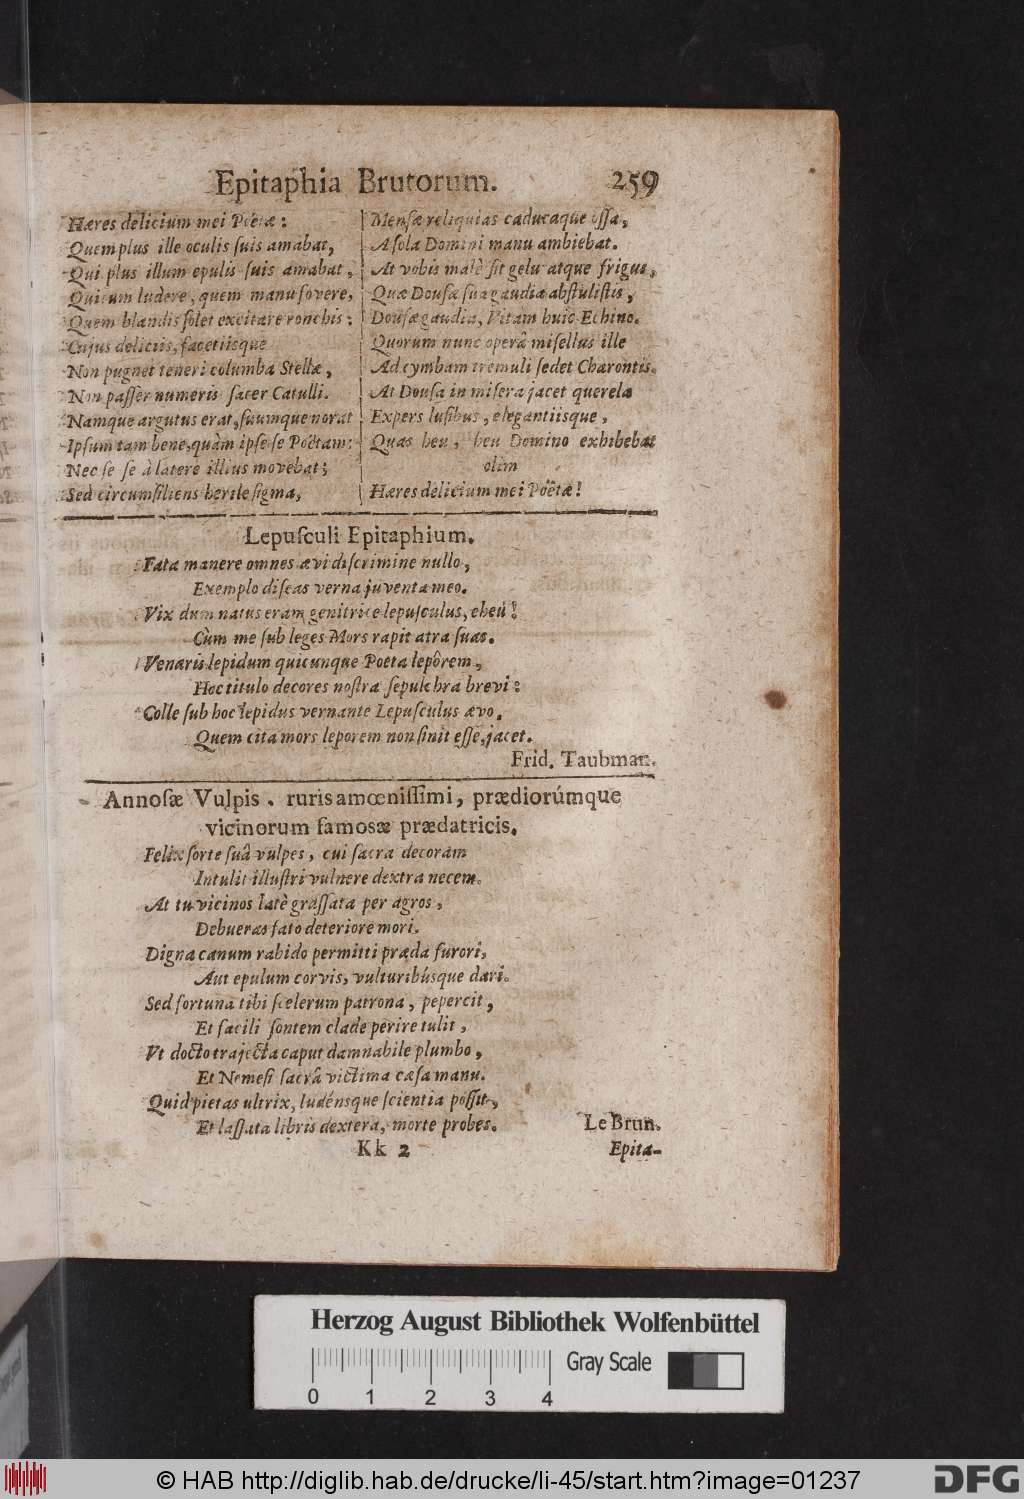 Epitaphia Brutorum. 259
Hæres delicium mei Poëtæ:
Quem plus ille oculis ſuis amabat,
Qui plus illum epulis ſuis amabat,
Quicum ludere, quem manu fovere,
Quem blandis ſolet excitare ronchis:
Cujus deliciis, facetiisque
Non pugnet teneri columba Stellæ,
Non paſſer numeris ſacer Catulli.
Namque argutus erat, ſuumque norat
Ipſum tam bene, quàm ipſe ſe Poëtam:
Nec ſe ſe à latere illius movebat;
Sed circumſiliens herile ſigma,
Menſæ reliquias caducaque oſſa,
A ſola Domini manu ambiebat.
At vobis malè ſit gelu atque frigus,
Quæ Douſæ ſua gaudia abſtuliſtis,
Douſæ gaudia, Vitam huic Echino.
Quorum nunc operâ miſellus ille
Ad cymbam tremuli ſedet Charontis.
At Douſa in miſera jacet querela
Expers luſibus, elegantiisque,
Quas heu, heu Domino exhibebat
olim
Hæres delicium mei Poëtæ!
Lepuſculi Epitaphium.
Fata manere omnes ævi diſcrimine nullo,
Exemplo diſcas verna juventa meo.
Vix dum natus eram genitrice lepuſculus, eheu!
Cùm me ſub leges Mors rapit atra ſuas.
Venaris lepidum quicunque Poeta lepôrem,
Hoc titulo decores noſtra ſepulchra brevi:
Colle ſub hoc lepidus vernante Lepuſculus ævo,
Quem cita mors leporem non ſinit eſſe, jacet.
Frid. Taubman.
Annoſæ Vulpis. ruris amœniſſimi, prædiorúmque
vicinorum famosæ prædatricis.
Felix ſorte ſuâ vulpes, cui ſacra decoram
Intulit illuſtri vulnere dextra necem.
At tu vicinos latè graſſata per agros,
Debueras fato deteriore mori.
Digna canum rabido permitti præda furori,
Aut epulum corvis, vulturibúsque dari.
Sed fortuna tibi ſcelerum patrona, pepercit,
Et facili ſontem clade perire tulit,
Vt docto trajecta caput damnabile plumbo,
Et Nemeſi ſacrâ victima cæſa manu.
Quid pietas ultrix, ludénsque ſcientia poſſit,
Et laſſata libris dextera, morte probes. Le Brun.
Kk 2 Epita-
Herzog August Bibliothek Wolfenbüttel
Gray Scale
0 1 2 3 4
© HAB http://diglib.hab.de/drucke/li-45/start.htm?image=01237
DFG